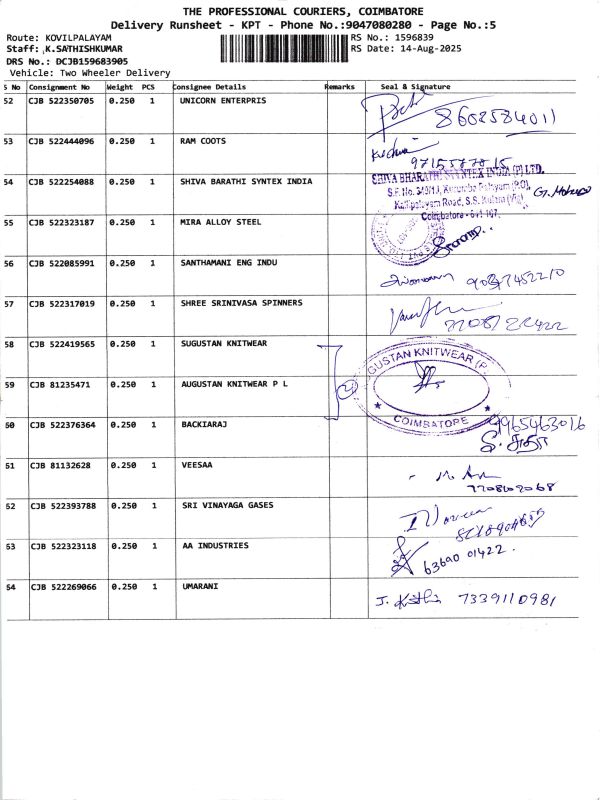 THE PROFESSIONAL COURIERS, COIMBATORE
Delivery Runsheet - KPT - Phone No.:9047080280 - Page No.:5
Route: KOVILPALAYAM RS No.: 1596839
Staff: K.SATHISHKUMAR RS Date: 14-Aug-2025
DRS No.: DCJB159683905
Vehicle: Two Wheeler Delivery
S No Consignment No Weight PCS Consignee Details Remarks Seal & Signature
52 CJB 522350705 0.250 1 UNICORN ENTERPRIS 8602584011
53 CJB 522444096 0.250 1 RAM COOTS
54 CJB 522254088 0.250 1 SHIVA BARATHI SYNTEX INDIA
SHIVA BHARATHI SYNTEX INDIA (P) LTD.
Coimbatore - 641 107.
55 CJB 522323187 0.250 1 MIRA ALLOY STEEL
56 CJB 522085991 0.250 1 SANTHAMANI ENG INDU
57 CJB 522317019 0.250 1 SHREE SRINIVASA SPINNERS
58 CJB 522419565 0.250 1 SUGUSTAN KNITWEAR
59 CJB 81235471 0.250 1 AUGUSTAN KNITWEAR P L 2
GUSTAN KNITWEAR (P
COIMBATORE
60 CJB 522376364 0.250 1 BACKIARAJ 9965463016
61 CJB 81132628 0.250 1 VEESAA
62 CJB 522393788 0.250 1 SRI VINAYAGA GASES
63 CJB 522323118 0.250 1 AA INDUSTRIES 63690 01422.
64 CJB 522269066 0.250 1 UMARANI 7339110981